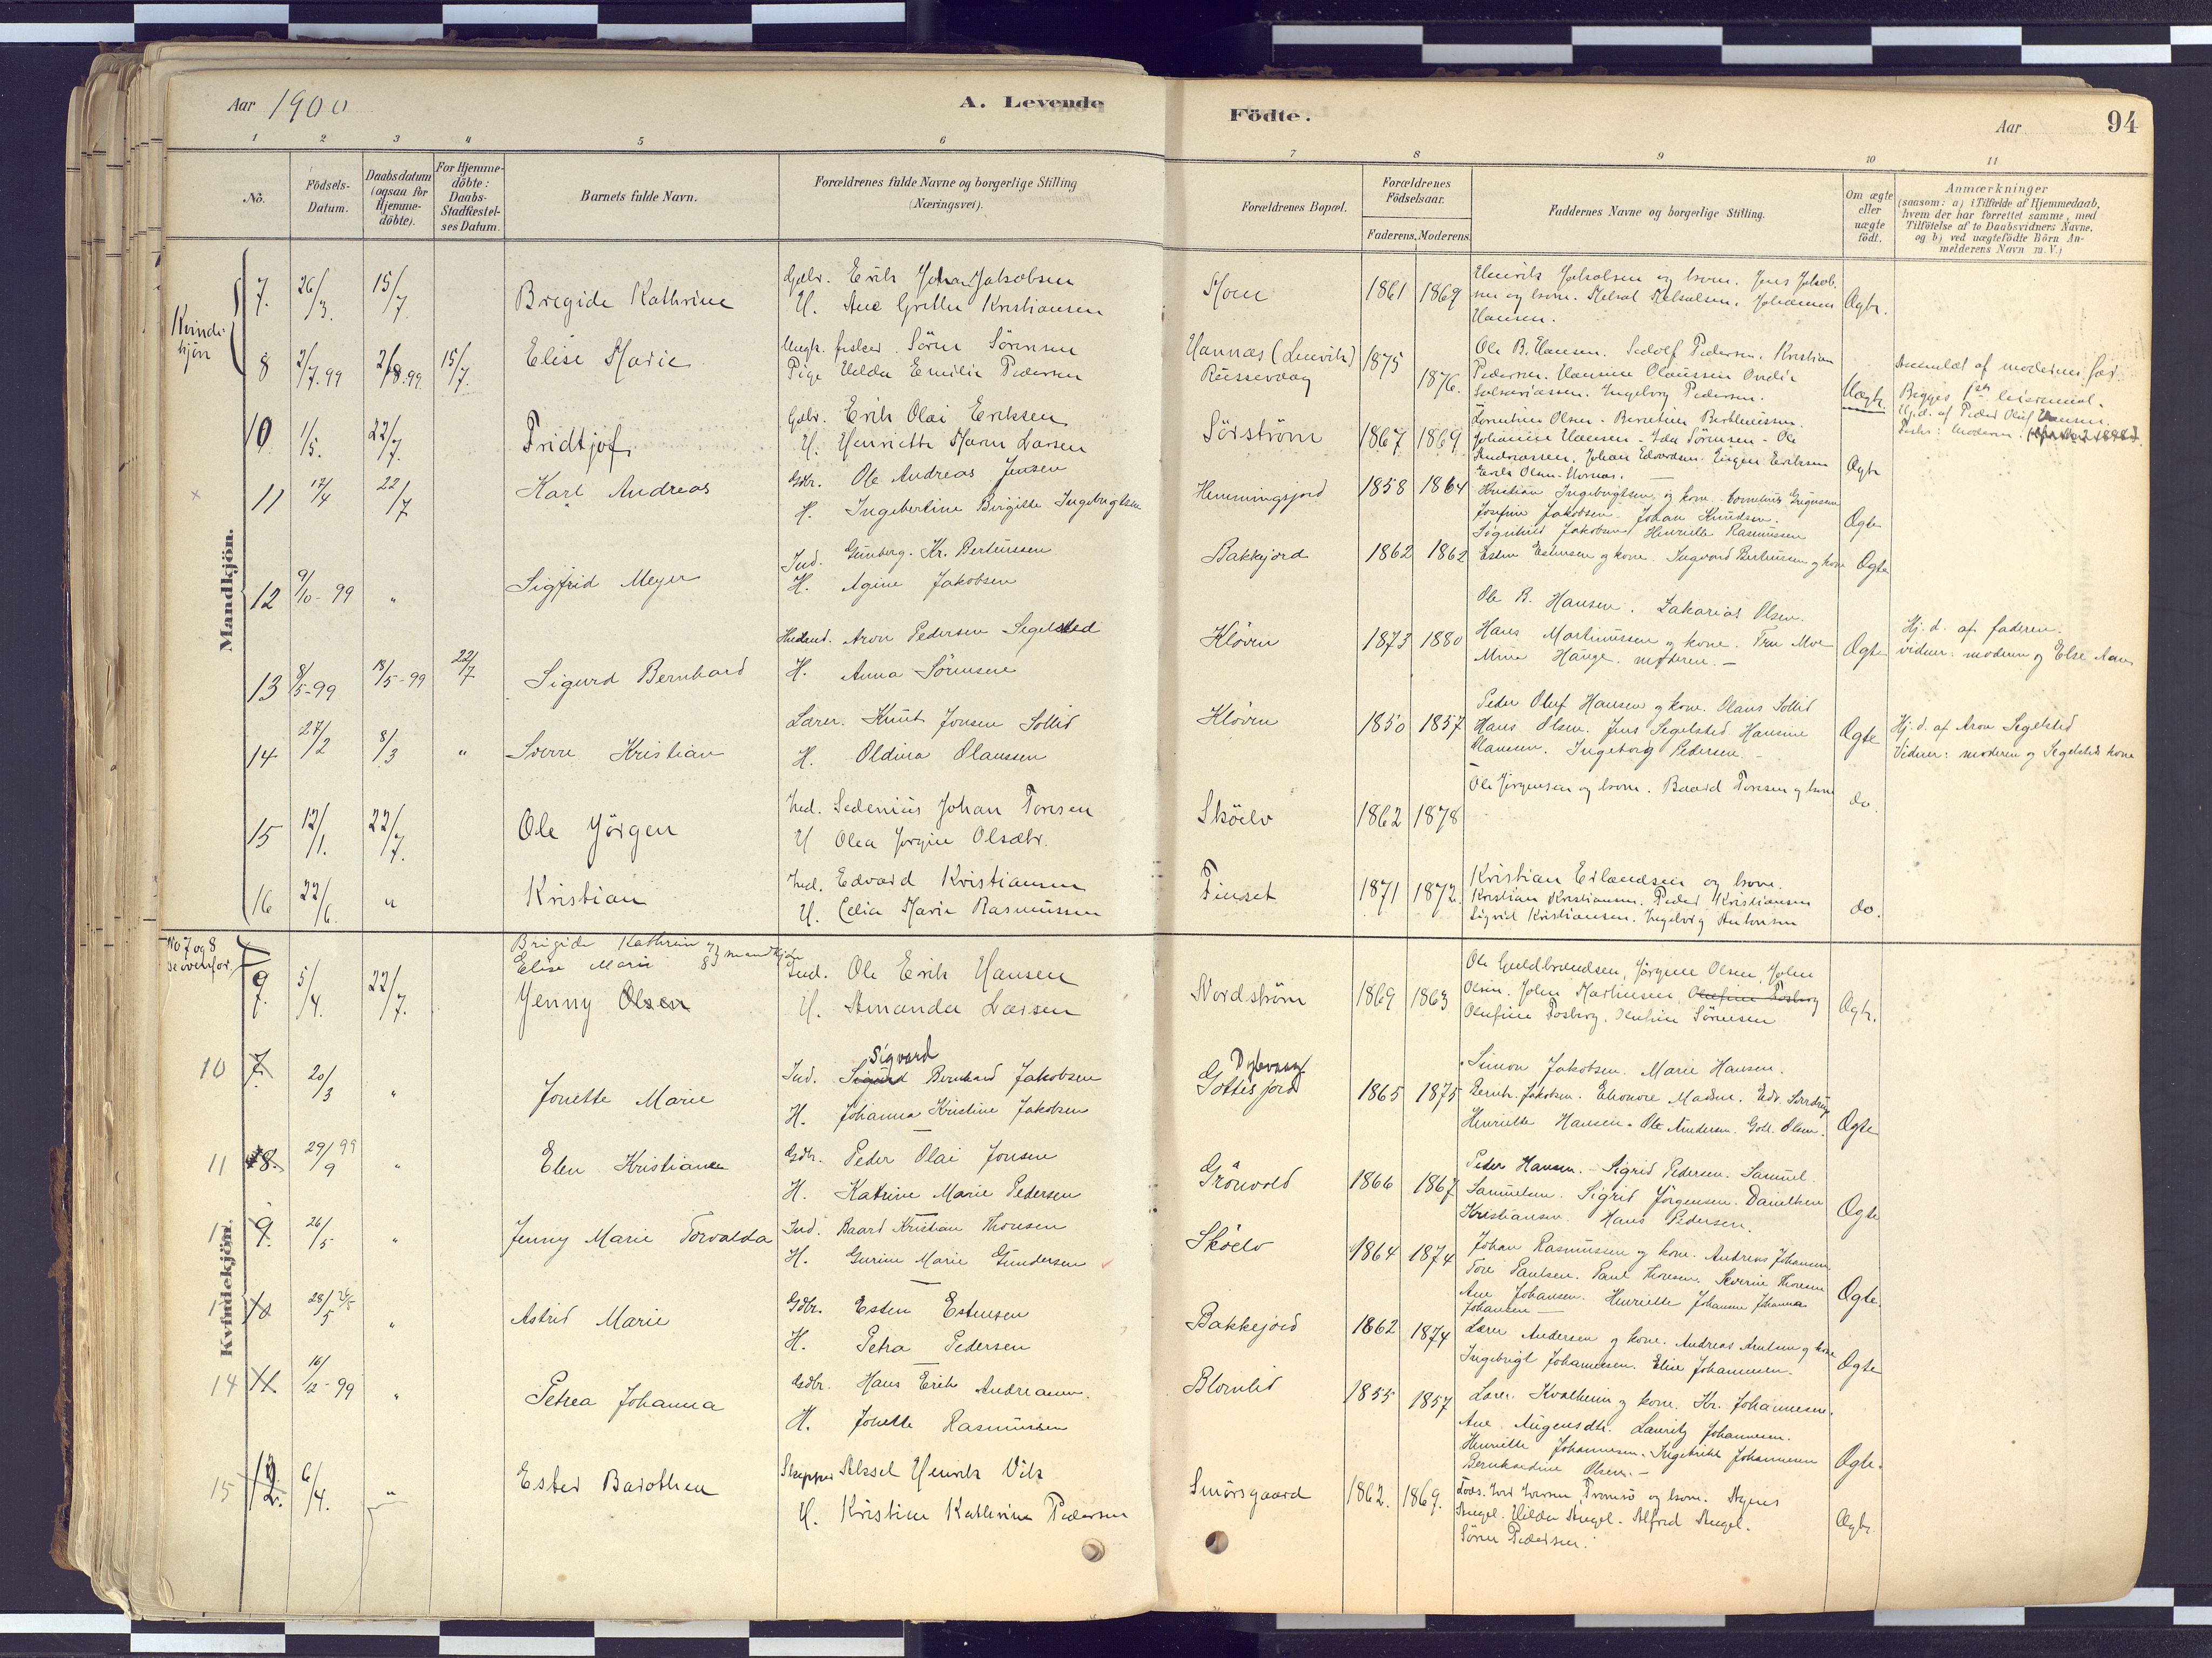 Aar 1900
A. Levende
Födte.
Aar
94
1 2 3 4 5 6 7 8 9 10 11
No.
Födsels-Datum.
Daabsdatum (ogsaa for Hjemme-döbte).
For Hjemme-döbte: Daabs-Stadfæstel-ses Datum.
Barnets fulde Navn.
Forældrenes fulde Navne og borgerlige Stilling (Næringsvei).
Forældrenes Bopæl.
Forældrenes Födselsaar.
Faderens. Moderens.
Faddernes Navne og borgerlige Stilling.
Om ægte eller uægte födt.
Anmærkninger
(saasom: a) i Tilfælde af Hjemmedaab,
hvem der har forrettet samme, med
Tilföielse af to Daabsvidners Navne.
og b) ved uægtefödte Börn An-
melderens Navn m. V.)
Kvinde-
kjön
Mandkjön.
7. 26/3. 15/7. Bregide Kathrine
Gdbr. Erik Johan Jakobsen
H. Ane Grethe Kristiansen
1861 1869
Henrik Jakobsen og kone. Jens Jakob-
sen og kone. Johannes
Hansen.
Ægte.
8 2/7.99 2/8.99. 15/7. Elise Marie
Ungk. fisker. Sören Sörensen
Pige Hilda Emilie Pedersen
Hannæs (Lenvik)
Russevaag
1875
1876.
Ole B. Hansen. Sedolf Pedersen. Kristian
Pedersen. Hansine Claussen
Ingeborg Pedersen.
Uægte.
Anmeldt af moderens far.
Begges 1ste leiermaal.
Hj.d. af Peder Oluf Hansen.
10 1/5. 22/7. Fridtjof
Gdbr. Erik Olai Eriksen
H. Henriette Marie Larsen
Sörström
1867 1869
Johanne Hansen - Ida Sörensen - Ole
Andreassen. Johan Edvardsen. Eriksen
Ægte
11 17/4 22/7 Karl Andreas
Gdbr. Ole Andreas Jensen
H. Ingebertine Birgitte Ingebrigtsen
Hemmingsjord
1858 1864
Kristian Ingebrigtsen og kone.
Josefine Jakobsen. Johan Knudsen.
Jakobsen Henriette Rasmussen
Ægte
12 9/10-99 " Sigfrid Meyer
Ind. Gunberg. Kr. Berteussen
H. Agine Jakobsen
Bakkejord
1862 1862
Esten Estensen og kone. Ingvard Berteussen og kone
Ægte
13 8/5-99 18/5-99 22/7 Sigurd Bernhard
Aron Pedersen Segelsted
H. Anna Sörensen
Klöven
1873 1880
Ole B. Hansen. Zakarias Olsen.
Hans Martinussen og kone. Fru Moe
Mina Hauge. moderen. -
Ægte
Hj. d. af faderen.
vidner: moderen og Else
14 27/2 8/3 " Sverre Kristian
Lærer. Knut Jonsen Sollid
H. Oldina Olaussen
Klöven
1850 1857
Peder Oluf Hansen og kone. Olaus Sollid
Hans Olsen. Jens Segelsted Hansine
Hansen. Ingeborg Pedersen -
Ægte
Hj. d. af Aron Segelsted
Vidner: moderen og Segelsteds kone
15 12/1. 22/7. Ole Jörgen
Ind. Sedenius Johan Toresen
H Olea Jörgine Olsdtr.
Sköelv
1862 1878
Ole Jörgensen og kone. Baard Toresen og kone
do.
16 22/6. " Kristian
Ind. Edvard Kristiansen
H. Celia Marie Rasmussen
Finset
1871 1872.
Kristian Erlandsen og kone.
Kristian Kristiansen. Peder Kristiansen
Sigrid Kristiansen. Ingeborg Antonsen
do.
No 7 og 8
se ovenfor
Kvindekjön.
Brigide Kathrine 7} mandkjön
Elise Marie 8}
9 5/4. 22/7. Jenny Olsen
Ind. Ole Erik Hansen
H. Amanda Larsen
Nordström
1869 1863
Ole Guldbrandsen, Jörgine Olsen, John
Olsen. John Martinsen, Olufine Fosberg
Olufine Fosberg. Olufine Sörensen
Ægte.
10 7. 20/3 " Jonette Marie
Sigvard
Ind. Sigurd Bernhard Jakobsen
H. Johanna Kristine Jakobsen
Gottesjord
1865 1875
Simon Jakobsen. Marie Hansen.
Bernh. Jakobsen. Eleonore Madsen. Edv.
Henriette Hansen. Ole Andersen. Gott. Olsen.
Ægte
11 8. 29/9 99 " Elen Kristiane
Gdbr. Peder Olai Jonsen
H. Katrine Marie Pedersen
Grönvold
1866 1867
Peder Hansen. - Sigrid Pedersen. Samuel
Samuelsen. Sigrid Jörgensen. Danielsen
Kristiansen. Hans Pedersen.
Ægte
9. 26/5 " Jenny Marie Torvalda
Ind. Baard Kristian Thoresen
H. Gurine Marie Gundersen
Sköelv
1864 1874
Johan Rasmussen og kone. Andreas Johansen.
Tore Paulsen. Paul Thoresen. Severine Thoresen
Ane Johansen. Henriette Johansen Johanna
Johansen -
Ægte.
10 28/5 " Astrid Marie
Gdbr. Esten Estensen
H. Petra Pedersen
Bakkejord
1862 1874
Lærer Andersen og kone. Andreas Arntsen og kone
Ingebrigt Johannesen. Elise Johannesen.
Ægte
14 11. 16/12-99 " Petrea Johanna
Gdbr. Hans Erik Andreassen.
H. Jonette Rasmussen
Blomlid
1855 1857
Lærer. Kvalheim og kone. Kr. Johannesen.
Ane Augensdtr. Lauritz Johannesen.
Henriette Johannesen. Ingebrikt Johannesen
Bernhardine Olsen. -
Ægte.
15 12. 6/4. " Ester Barothea
Skipper Aksel Henrik Vik
H. Kristine Kathrine Pedersen
Smörsgaard
1862. 1869.
Tromsö og kone. Agnes
Angel. Hilda Angel. Alfred Angel.
Sören Pedersen.
Ægte.